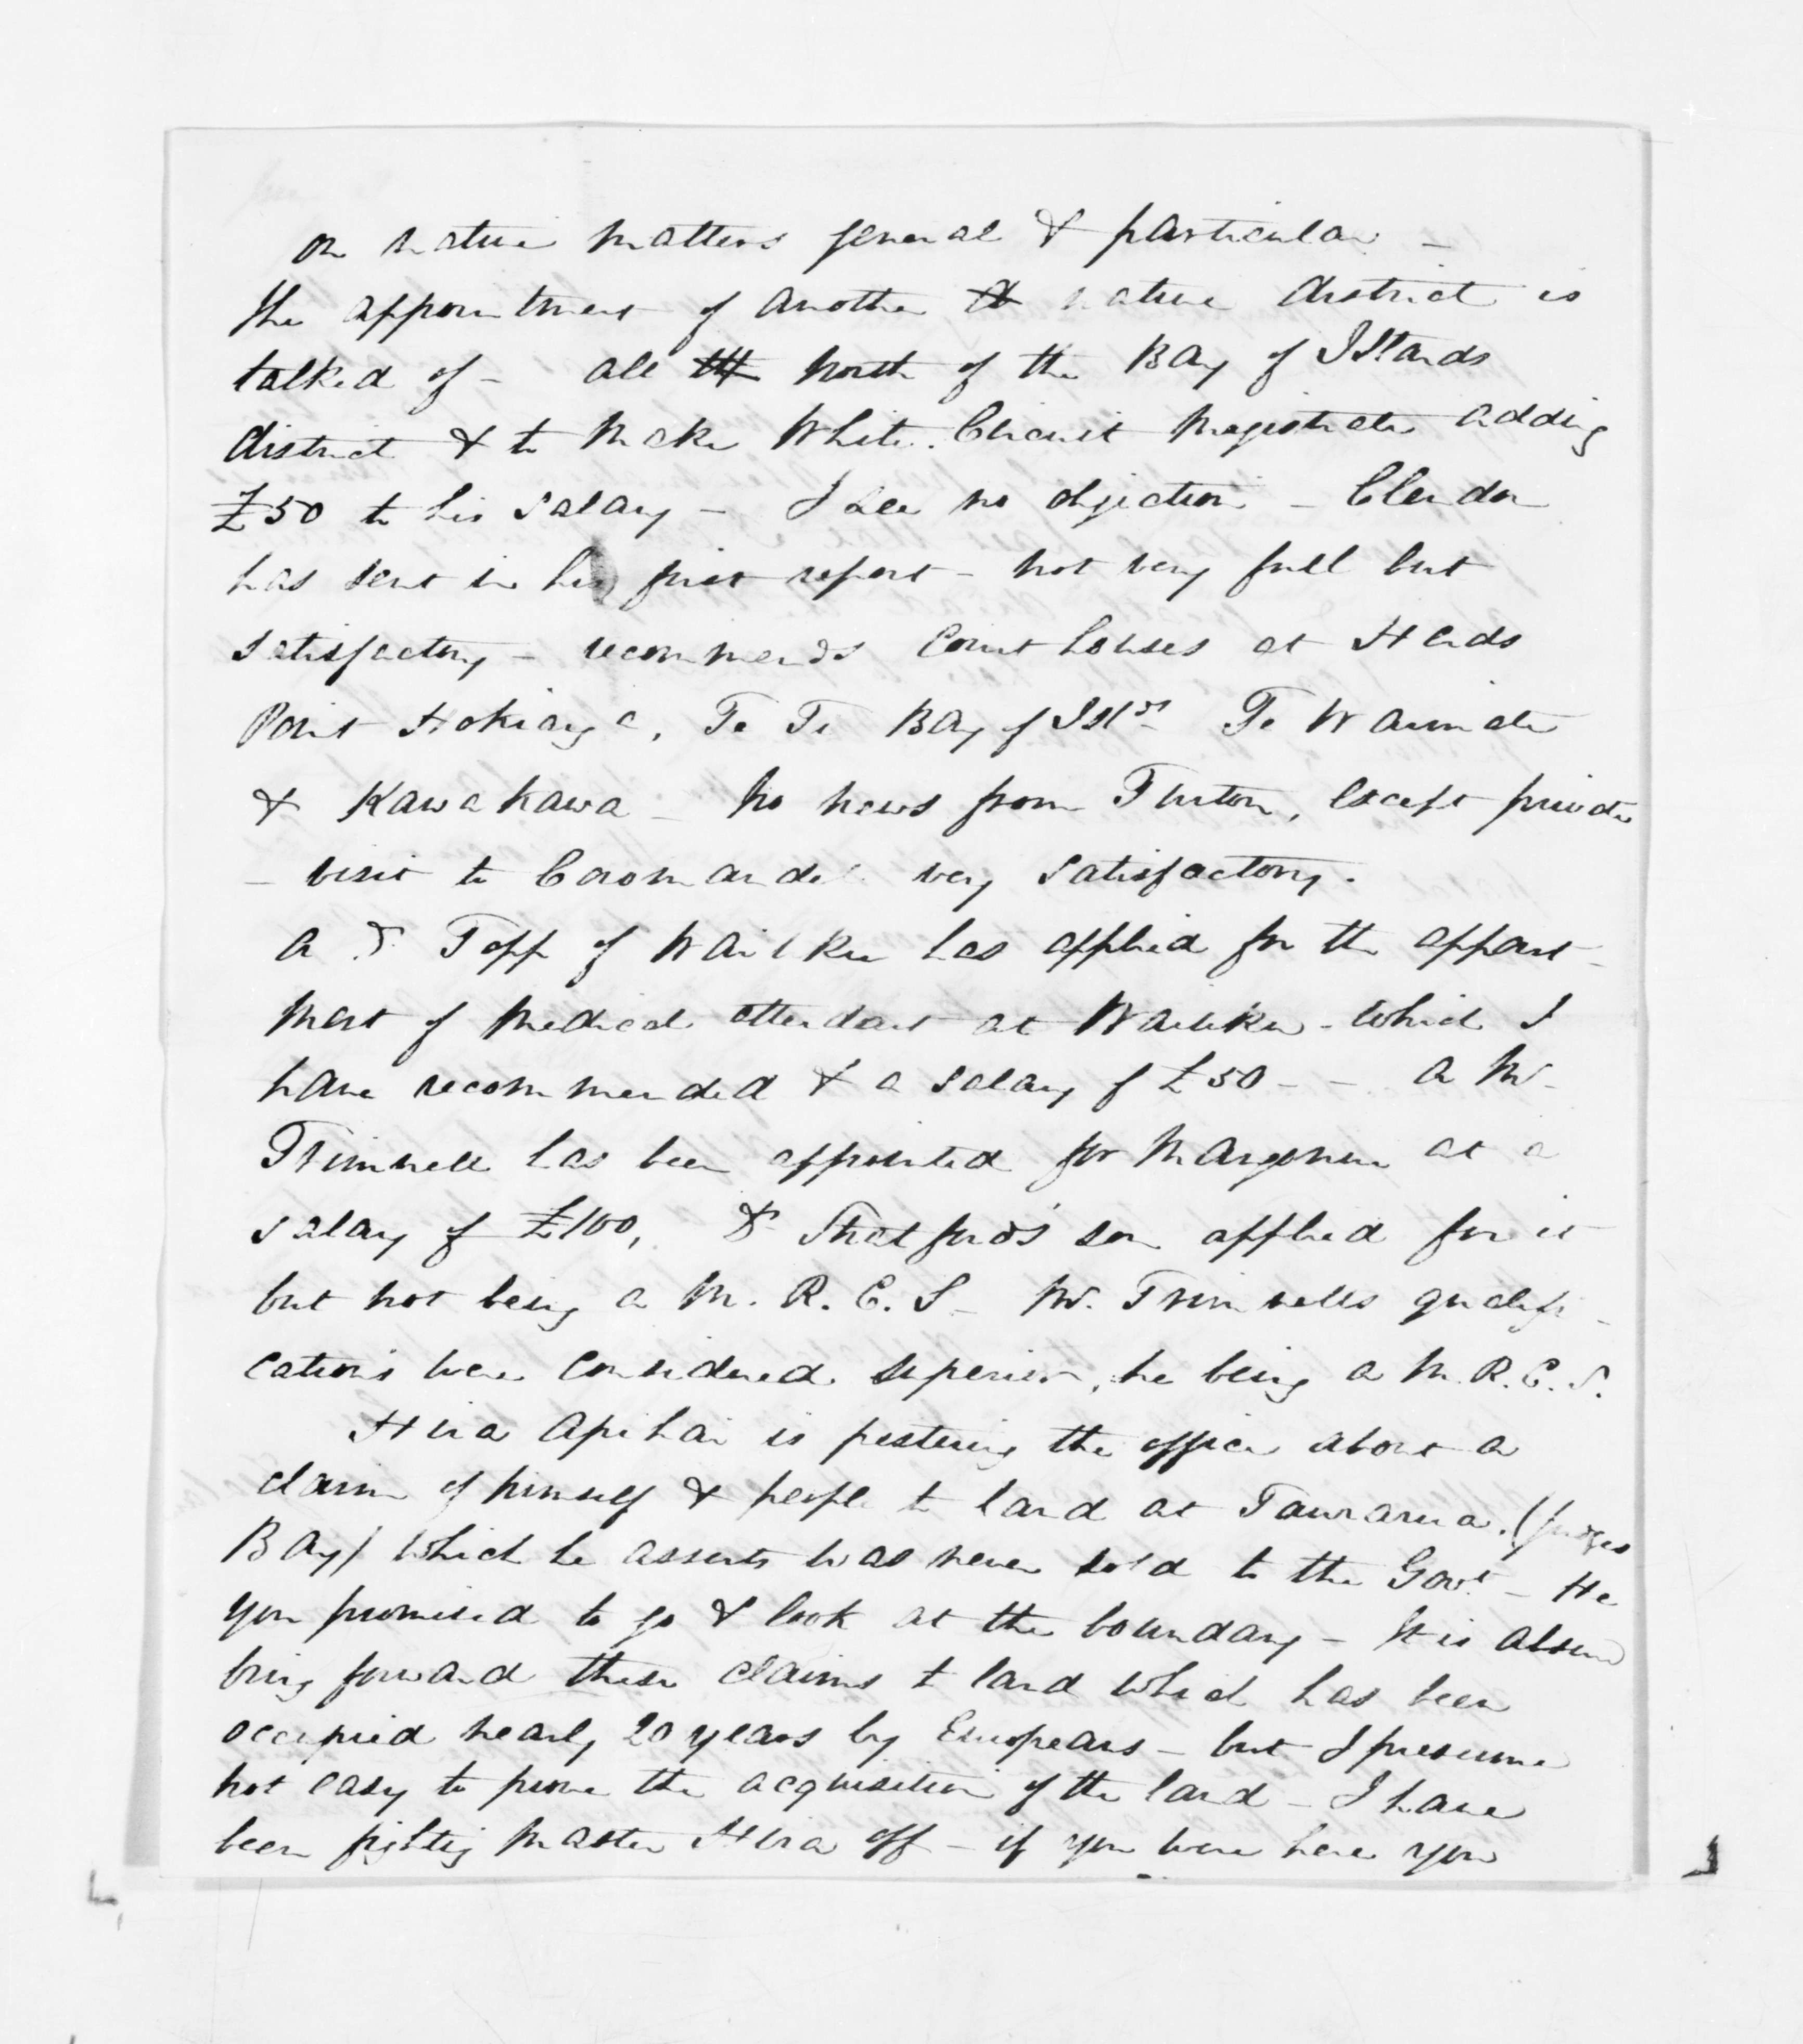 on native matters general & particular -
The appointment of another native district is
talked of - all north of the Bay of Islands
district & to make White Circuit Magistrate adding
£50 to his salary - I see no objection - Clendon
has sent in his first report - not very full but
satisfactory - recommends Court houses at Herds
Point Hokianga, Te Ti Bay of Islds Te Waimate
& Kawakawa - No news from Turton, except private
- visit to Coromandel very satisfactory.
A Dr Topp of Waiuku has applied for the appoint-
ment of medical attendant at Waiuku - which I
have recommended & a salary of £50 - - A Mr
Trimnell has been appointed for Mangonui at a
salary of £100, Dr Stratford's son applied for it
but not being a M. R. C. S - Mr. Trimnells qualifi-
cations were considered superior, he being a M. R. C. S.
Hira Apihai is pestering the office about a
claim of himself & people to land at Taurarua. (Judges
Bay) which he asserts was never sold to the Govt - He
you promised to go & look at the boundary - It is absurd
bring forward these claims to land which has been
occupied nearly 20 years by Europeans - but I presume
not easy to prove the acquisition of the land - I have
been fighting Master Hira off - if you were here you